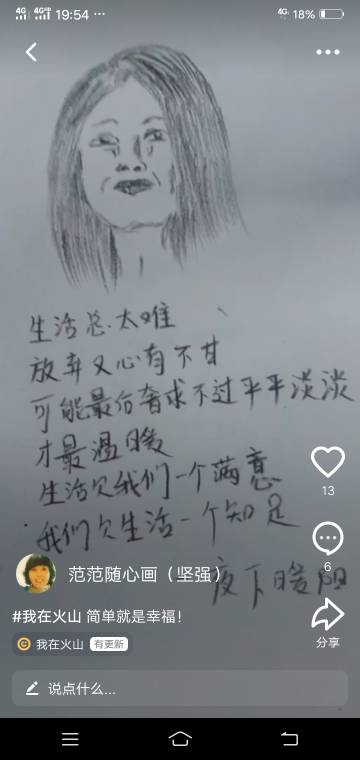 4G 4GHD 19:54 ··· 4G 18%
生活总太难
放弃又心有不甘
可能最后奢求不过平平淡淡
才最温暖
生活欠我们一个满意
我们欠生活一个知足
夜下暖阳
13
6
分享
范范随心画（坚强）
#我在火山 简单就是幸福！
我在火山 有更新
说点什么...